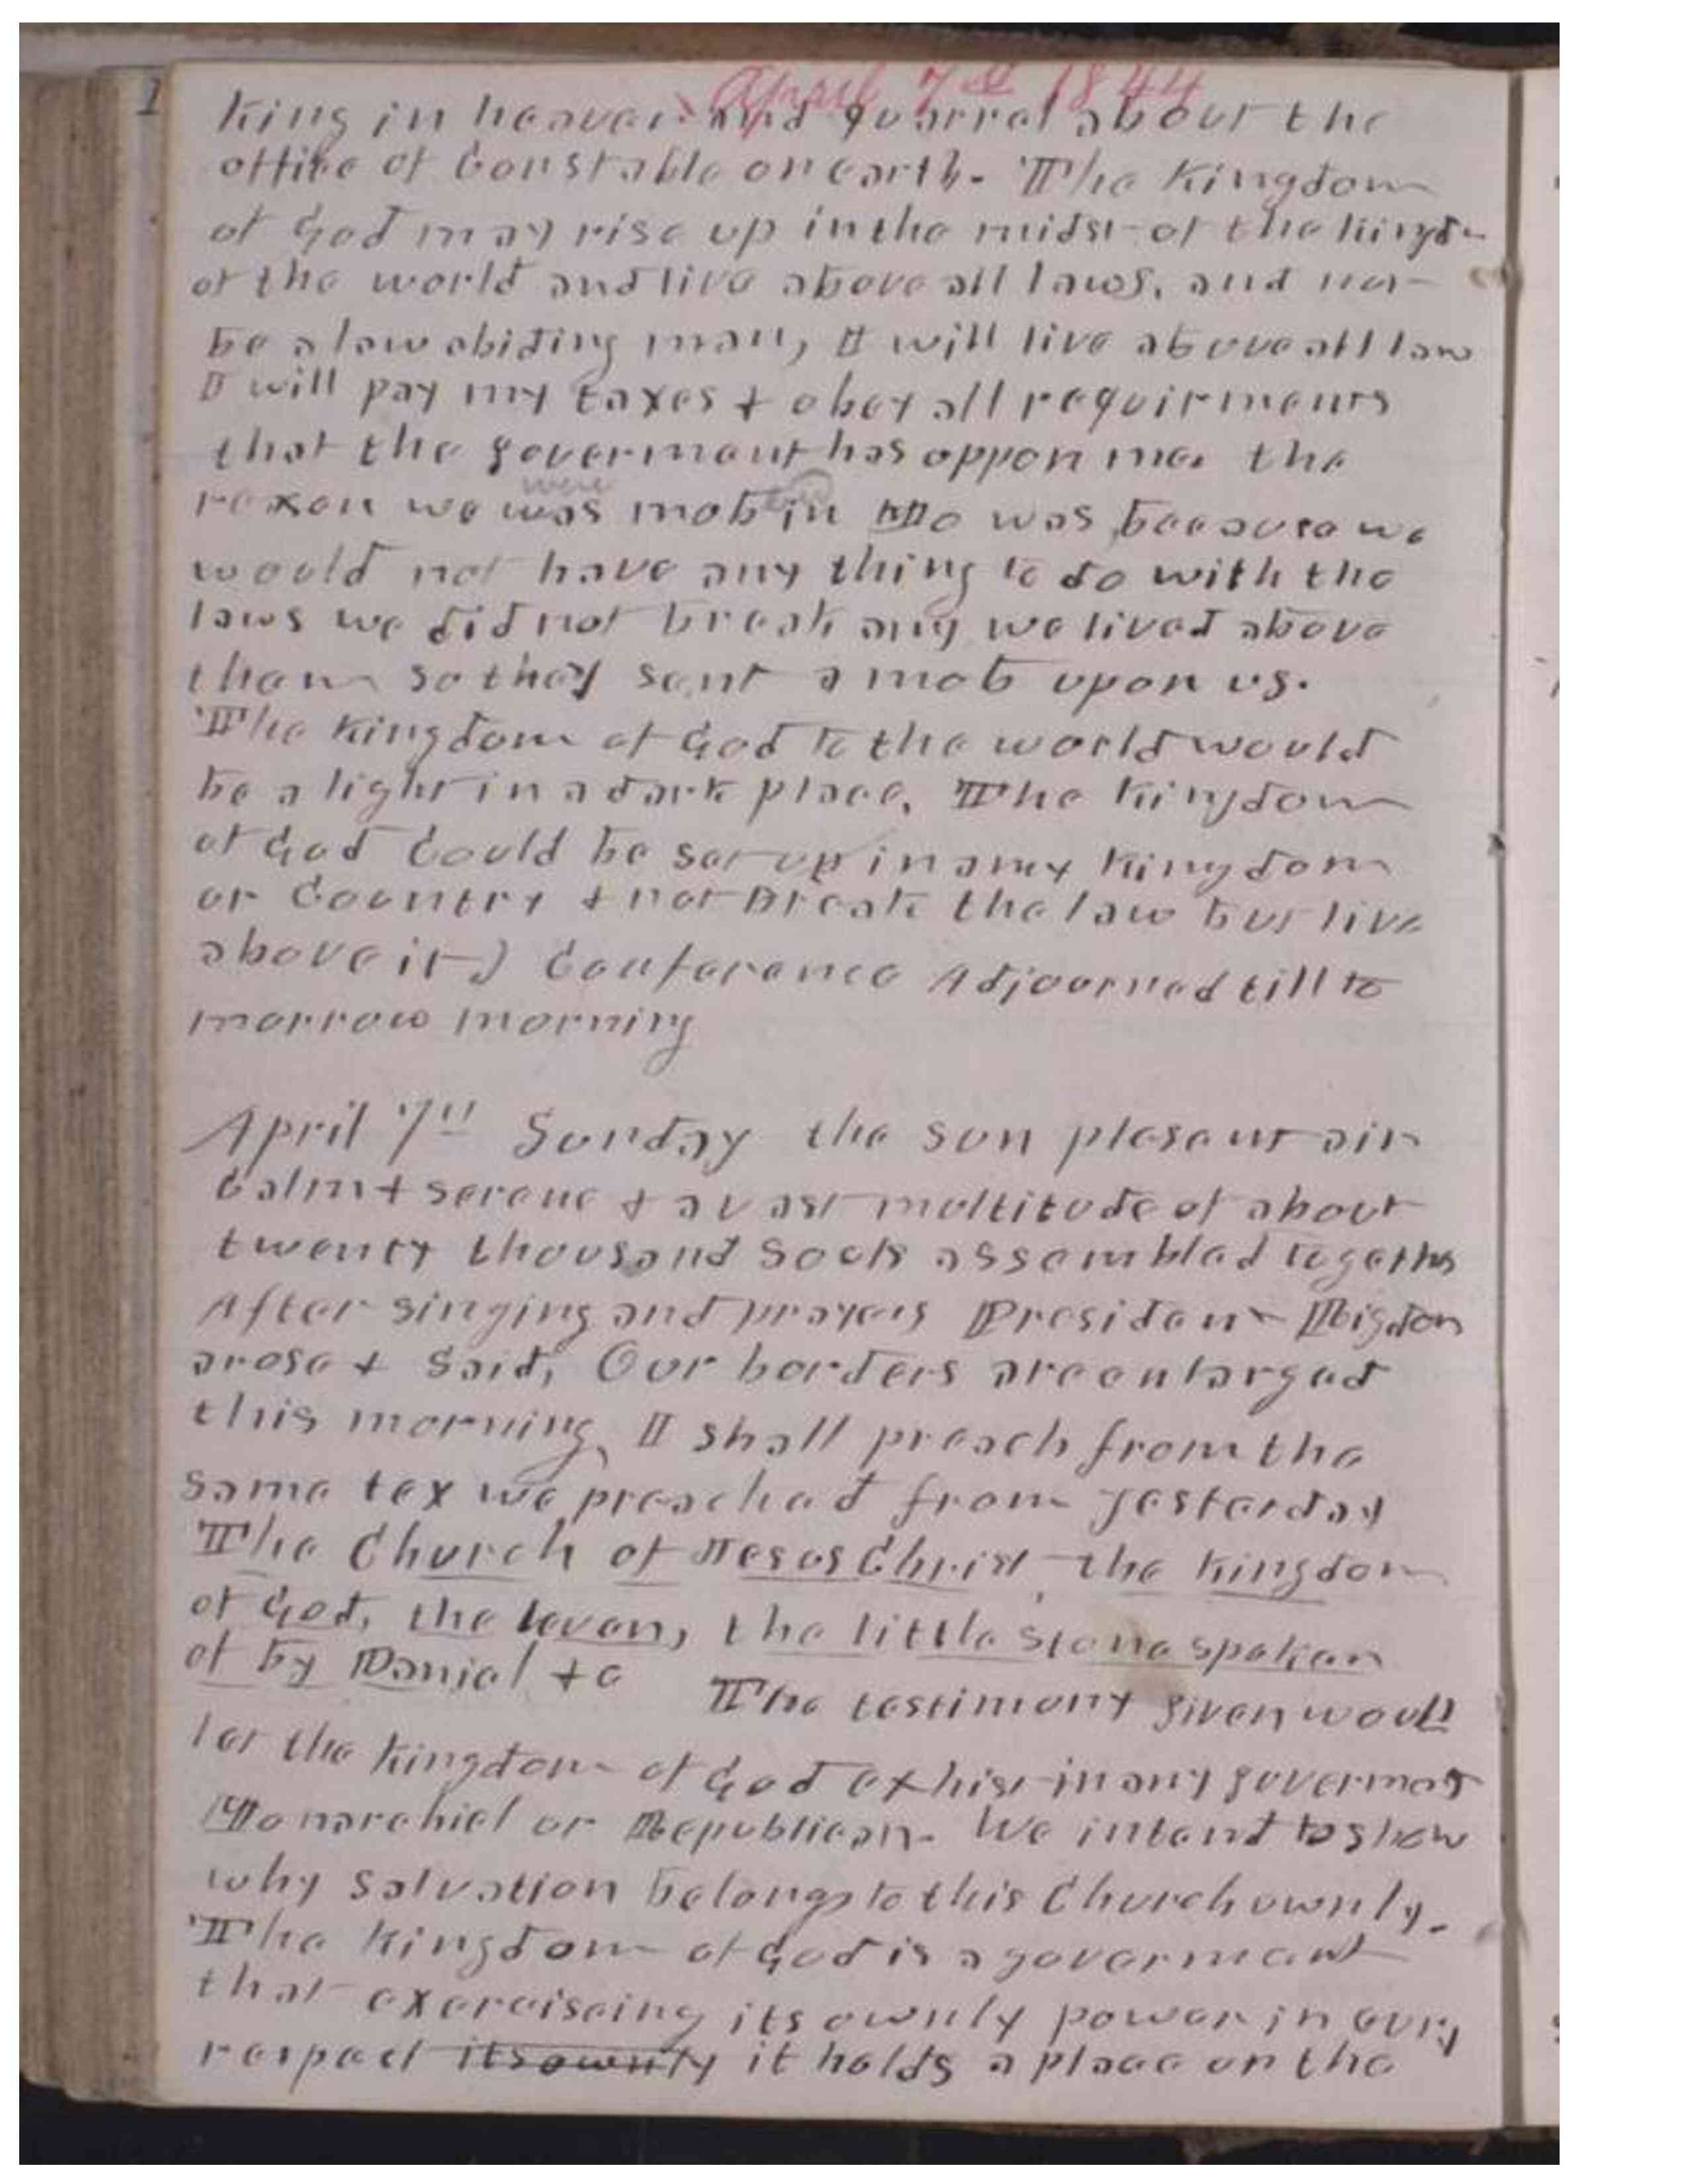 April 7th 1844
King in heaven and quarrel about the
office of Constable on earth. The Kingdom
of God may rise up in the midst of the kingdm
of the world and live above all laws, and not
be a law abiding man, I will live above all law
I will pay my taxes & obey all requirments
that the goverment has oppon me. the
reason we was mob in Mo was because we
were
would not have any thing to do with the
laws we did not break any we lived above
them so they sent a mob upon us.
The Kingdom of God to the world would
be a light in a dark place, The Kingdom
of God Could be set up in any Kingdom
or Country & not Break the law but live
above it) Conference Adjourned till to
morrow morning
April 7th Sunday the sun plesant air
Calm & serene & a vast multitude of about
twenty thousand Souls assembled togeths
After singing and prayers President Rigdon
arose & Said, Our borders are enlarged
this morning, I shall preach from the
same tex we preached from yesterday
The Church of Jesus Christ, the kingdom
of God, the leven, the little stone spoken
of by Danial &c The testimony given would
let the kingdom of God exhist in any govermet
Monarchiel or Republican. We intend to show
why salvation belongs to this Church ownly.
The Kingdom of God is a goverment
that exerciseing its ownly power in evry
respect its ownly it holds a place on the